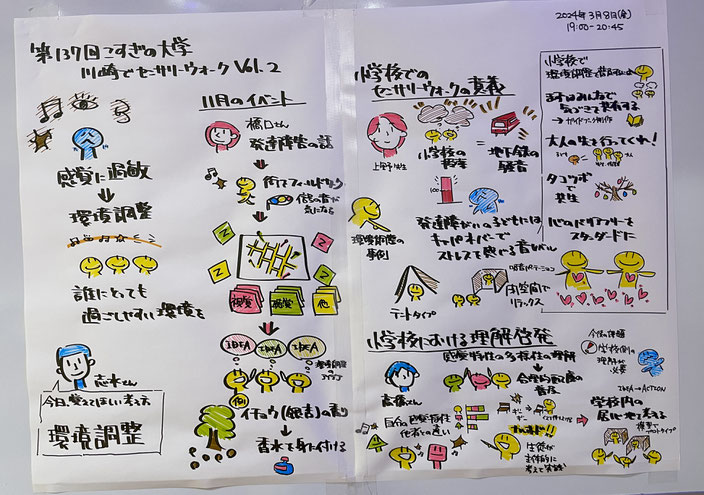 2024年3月8日(金)
19:00-20:45
第137回こすぎの大学
川崎でセンサリーウォーク Vol.2
感覚に過敏
環境調整
誰にとっても
過ごしやすい環境を
志水さん
今日、覚えてほしい考え方
環境調整
11月のイベント
橋口さん
発達障害の話
街でフィールドワーク
信号の音が
気になる
Z
Z
Z
N
視覚
聴覚
他
IDEA
IDEA
IDEA
環境調整の
アイデア
例
イチョウ(銀杏)の香り
香水を身に付ける
小学校での
センサリーウォークの意義
小学校の
= 地下鉄の
騒音
100
環境調整の
事例
発達障がいの子どもには
キャパオーバーで
ストレスを感じる音がいっ
テントタイプ
閉空間で
リラックス
小学校で
まずはみんなで
気づきを共有する
→ガイドブック制作
大人の先を行ってくれ!
タコツボ
で
共生
心のバリアフリーを
スタンダードに
小学校における理解啓発
感覚特性の多様性の理解
合理的配慮の
斎藤さん
他者との違い
生徒が
主体的に
考えて実践!
今後の課題
学校側の
理解が
必要
IDEA→ACTION
学校内の
居心地を考える
模型で
プロトタイプ